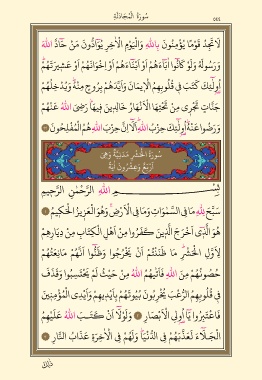 سُورَةُ الْمُجَادَلَةِ
٥٤٤
لَا تَجِدُ قَوْمًا يُؤْمِنُونَ بِاللهِ وَالْيَوْمِ الْاٰخِرِ يُوَٓادُّونَ مَنْ حَٓادَّ اللهَ
وَرَسُولَهُ وَلَوْ كَانُٓوا اٰبَٓاءَهُمْ اَوْ اَبْنَٓاءَهُمْ اَوْ اِخْوَانَهُمْ اَوْ عَشِيرَتَهُمْ
اُو۬لٰٓئِكَ كَتَبَ فِي قُلُوبِهِمُ الْاِيمَانَ وَاَيَّدَهُمْ بِرُوحٍ مِنْهُ وَيُدْخِلُهُمْ
جَنَّاتٍ تَجْرِي مِنْ تَحْتِهَا الْاَنْهَارُ خَالِدِينَ فِيهَا رَضِيَ اللهُ عَنْهُمْ
وَرَضُوا عَنْهُ اُو۬لٰٓئِكَ حِزْبُ اللهِ اَلَٓا اِنَّ حِزْبَ اللهِ هُمُ الْمُفْلِحُونَ
سُورَةُ الْحَشْرِ مَدَنِيَّةٌ وَهِيَ
اَرْبَعٌ وَعِشْرُونَ اٰيَةً
بِسْمِ اللهِ الرَّحْمٰنِ الرَّحِيمِ
سَبَّحَ لِلهِ مَا فِي السَّمٰوَاتِ وَمَا فِي الْاَرْضِ وَهُوَ الْعَزِيزُ الْحَكِيمُ
هُوَ الَّذِٓي اَخْرَجَ الَّذِينَ كَفَرُوا مِنْ اَهْلِ الْكِتَابِ مِنْ دِيَارِهِمْ
لِاَوَّلِ الْحَشْرِ مَا ظَنَنْتُمْ اَنْ يَخْرُجُوا وَظَنُّٓوا اَنَّهُمْ مَانِعَتُهُمْ
حُصُونُهُمْ مِنَ اللهِ فَاَتٰيهُمُ اللهُ مِنْ حَيْثُ لَمْ يَحْتَسِبُوا وَقَذَفَ
فِي قُلُوبِهِمُ الرُّعْبَ يُخْرِبُونَ بُيُوتَهُمْ بِاَيْدِيهِمْ وَاَيْدِي الْمُؤْمِنِينَ
فَاعْتَبِرُوا يَٓا اُو۬لِي الْاَبْصَارِ وَلَوْلَٓا اَنْ كَتَبَ اللهُ عَلَيْهِمُ
الْجَلَٓاءَ لَعَذَّبَهُمْ فِي الدُّنْيَا وَلَهُمْ فِي الْاٰخِرَةِ عَذَابُ النَّارِ
ذٰلِكَ